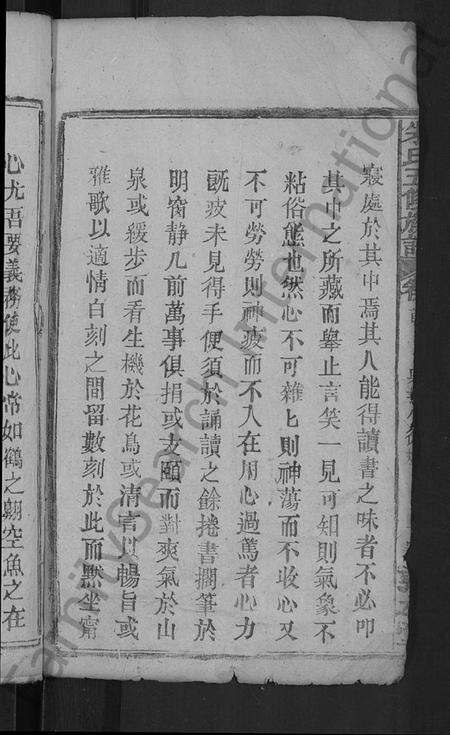 寢處於其中焉其人能得讀書之味者不必叩
其中之所藏而舉止言笑一見可知則氣象不
粘俗態也然心不可雜匕則神蕩而不收心又
不可勞勞則神疲而不入在用心過篤者心力
旣疲未見得手便須於誦讀之餘捲書擱筆於
明窗静几前萬事俱捐或支頤而對爽氣於山
泉或緩步而看生機於花鳥或清言以暢旨或
雅歌以適情白刻之間留數刻於此而默坐甯
心尤吾要義務使此心常如鶴之翱空魚之在
FamilySearch International